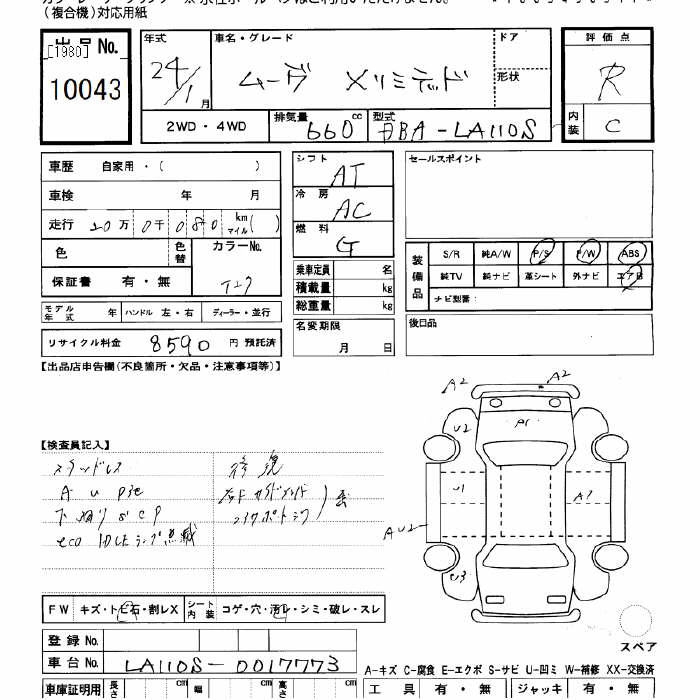 (複合機)対応用紙
出品No.
[1980]
10043
年式
24/1月
車名・グレード
ムーヴ Xリミテッド
ドア
形状
評価点
R
内装
C
2WD・4WD
排気量
660 cc
型式
DBA-LA110S
車歴 自家用・( )
車検 年 月
走行 20万0千080 km マイル( )
色
色替
カラーNo.
T27
保証書 有・無
モデル年式 年
ハンドル 左・右
ディーラー・並行
リサイクル料金 8590 円 預託済
シフト
AT
冷房
AC
燃料
G
乗車定員 名
積載量 kg
総重量 kg
名変期限
月 日
セールスポイント
装備品
S/R 純A/W P/S P/W ABS
純TV 純ナビ 革シート 外ナビ エアB
ナビ型番:
後日品
【出品店申告欄(不良箇所・欠品・注意事項等)】
【検査員記入】
A U
eco
修復
A2
A2
U2
P1
U1
A1
U3
FW キズ・トビ石・割レX
シート内装 コゲ・穴・汚レ・シミ・破レ・スレ
登録No.
車台No. LA110S-0017773
スペア
A-キズ C-腐食 E-エクボ S-サビ U-凹ミ W-補修 XX-交換済
車庫証明用 長さ cm 幅 cm 高さ cm
工具 有・無 ジャッキ 有・無